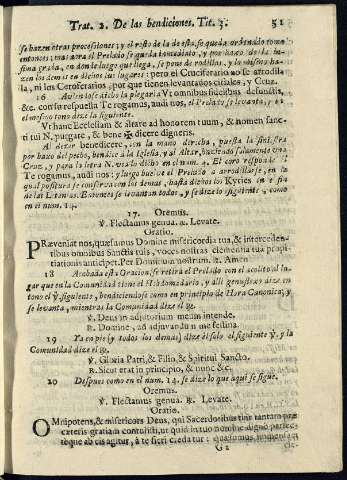 Trat. 2. De las bendiciones. Tit. 3. 51
se hazen otras processiones; y el resto de la de esta se queda ordenado como
entonces; mas aora el Prelado se queda
sima grada, en donde luego que llega, se pone de rodillas, y lo mismo ha-
zen los demàs en dichos sus lugares: pero el Cruciferario no se arrodi-
la, ni los Ceroferarios, por que tienen levantados ciriales, y Cruz.
16 Aviendose dicho la plegaria Vt omnibus fidelibus defunctis,
&c. con su respuesta Te rogamus, audi nos, el Prelado se levanta, y en
el mismo tono dize la siguiente.
Vt hanc Ecclesiam & altare ad honorem tuum, & nomen sanc-
ti tui N. purgare, & bene ✠ dicere digneris.
Al dezir benedicere, con la mano derecha, puesta la siniestra
por baxo del pecho, bendice la Iglesia, y al Altar, haziendo solamente una
Cruz, y para la letra N. vea lo dicho en el num. 4. El coro responde
Te rogamus, audi nos: y luego buelve el Prelado a arrodillarse, en la
qual positura se conserva con los demàs, hasta dichos los Kyries en fin
de las Letanias. Entonces se levantan todos, y se dize lo siguiente, como
en el num. 14.
17. Oremus.
℣. Flectamus genua. ℟. Levate.
Oratio.
PRæveniat nos, quæsumus Domine misericordia tua, & interceden-
tibus omnibus Sanctis tuis, voces nostras clementia tua propi-
tiationis anticipet. Per Dominum nostrum. ℟. Amen
18 Acabada esta Oracion, se retira el Prelado con el acolito al lu-
gar que en la Comunidad tiene el Hebdomadario, y alli genuflexo dize en
tono el ℣. siguiente, bendiciendose como en principio de Hora Canonica; y
se levanta, mientras la Comunidad dize el ℟.
℣. Deus in adjutorium meum intende.
℟. Domine, ad adjuvandum me festina.
19 Ya en pie (y todos los demas) dize èl solo el siguiente ℣. y la
Comunidad dize el ℟.
℣. Gloria Patri, & Filio, & Spiritui Sancto.
℟. Sicut erat in principio, & nunc &c.
20 Despues como en el num. 14. se dize lo que aqui se sigue.
Oremus.
℣. Flectamus genua. ℟. Levate.
Oratio.
OMnipotens, & misericors Deus, qui Sacerdotibus tuis tantam præ
cæteris gratiam contulisti, ut quidquid in tuo nomine dignè perfec-
tèque ab eis agitur, à te fieri credatur: quæsumus immensam
G2